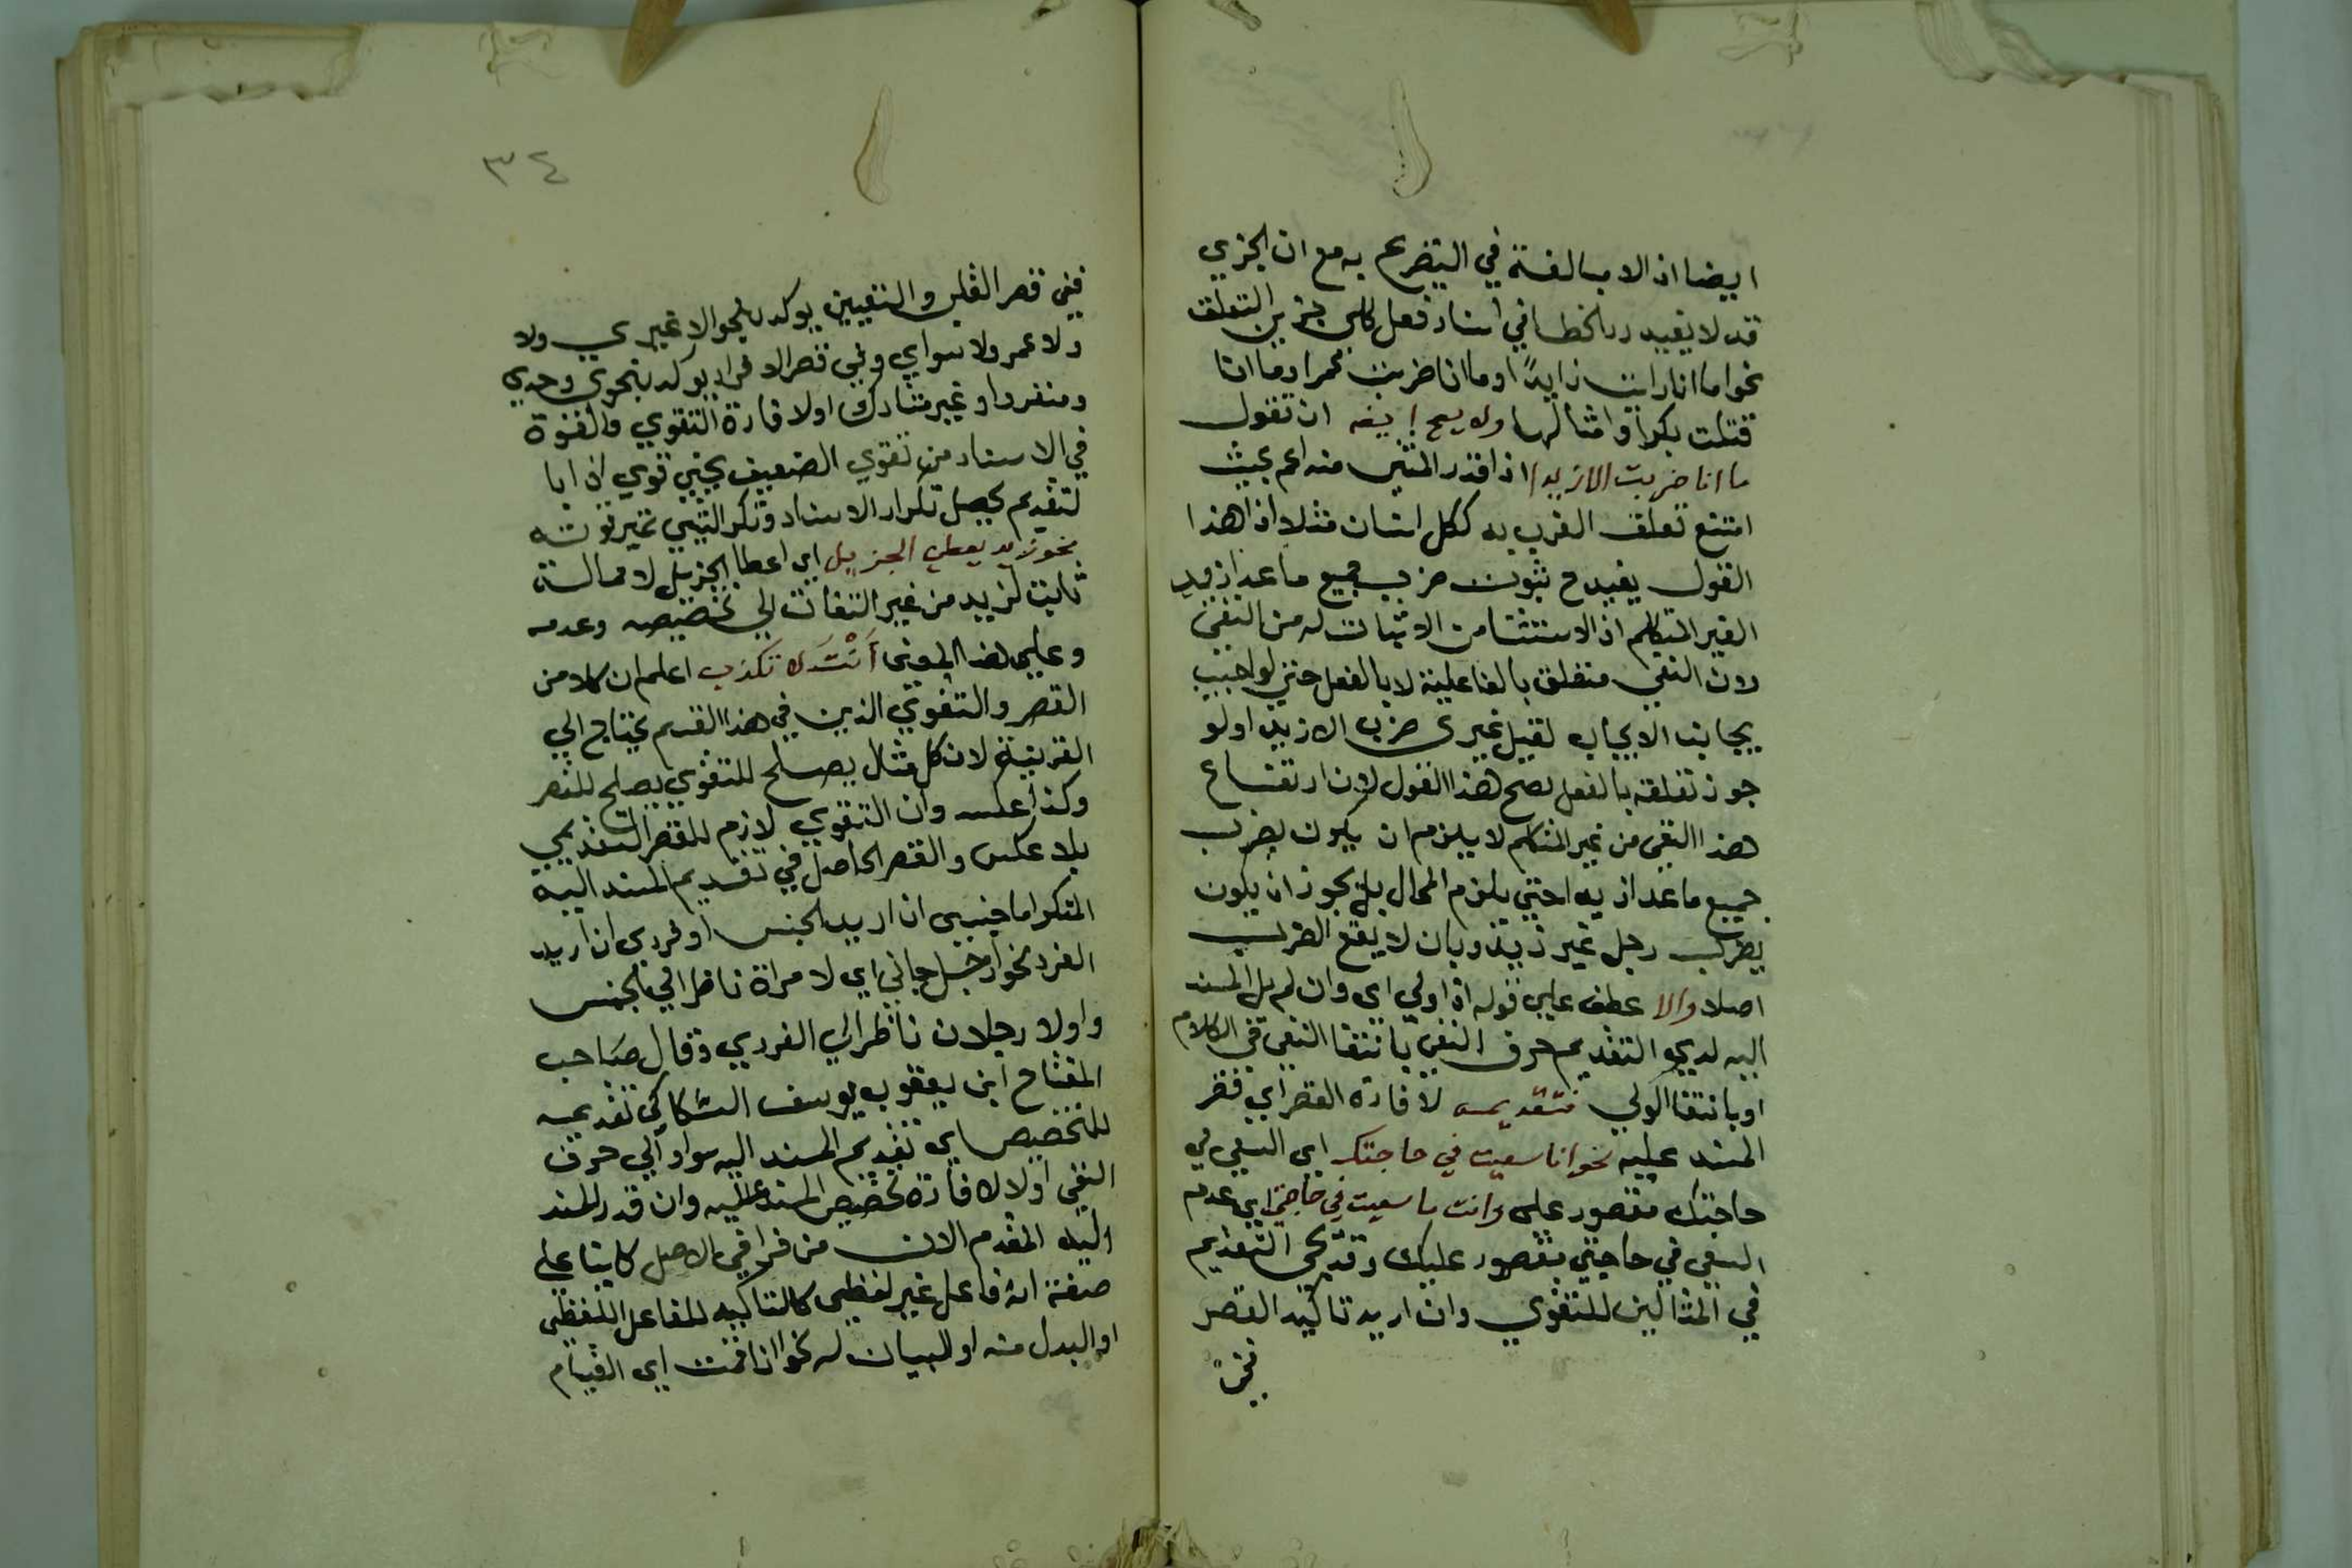 ايضا اذ لا مبالغة في التصريح به مع ان الجزي
قد لا يفيد رد الخطا في اسناد فعل كلي جزيي التعلق
نحو ما انا رايت زايدًا او ما انا ضربت عمرا وما انا
قتلت بكرا وامثالها ولا يصح ايضه ان تقول
ما انا ضربت الا زيدا اذا قدر المستثنى منه اعم بحيث
امتنع تعلق الضرب به ككل انسان مثلا اذ هذا
القول يفيد ح ثبوت ضرب جميع ما عدا زيد
لغير المتكلم اذ الاستثنا من الاثبات له من النفي
دون النفي متعلق بالفاعلية لا بالفعل حتى لو اجيب
بجانب الايجاب لقيل غيري ضرب الا زيدا ولو
جوز تعلقه بالفعل لصح هذا القول لان ارتفاع
هذا النفي من غير المتكلم لا يلزم ان يكون بضرب
جميع ما عدا زيدا حتى يلزم المحال بل يجوز ان يكون
بضرب رجل غير زيد وبان لا يقع الضرب
اصلا والا عطف على قوله ان ولي اي وان لم يل المسند
اليه لديجو التقديم حرف النفي بانتفا النفي في الكلام
او بانتفا الولي فتقديمه لافادة القصر اي قصر
المسند عليه نحو انا سعيت في حاجتك اي السعي في
حاجتك مقصور علي وانت ما سعيت في حاجتي اي عدم
السعي في حاجتي مقصور عليك وقد يجي التقديم
في المثالين للتقوي وان اريد تاكيد القصر
ففي
٣٤
ففي قصر القلب والتعيين يوكد بنحو لا غيري ولا
ولا عمر ولا سواي وفي قصر الافراد يوكد بنحوي وحدي
ومنفردا وغير مشارك او لافادة التقوي والقوة
في الاسناد من تقوي الضعيف بجيي قوي اذ ابا
لتقديم يحصل تكرار الاسناد وتكر الشيي تميز قوته
نحو زيد يعطي الجزيل اي اعطا الجزيل لا محالة
ثابت لزيد من غير التفات الي تخصيصه وعدمه
وعلى هذا المعنى أَنْتَ لا تكذب اعلم ان كلا من
القصر والتقوي الذين في هذا القسم يحتاج الي
القرينة لان كل مثال يصلح للتقوي يصلح للقصر
وكذا عكسه وان التقوي لازم للقصر التقديمي
بلا عكس والقصر الحاصل في تقديم المسند اليه
المنكر اما جنسي ان اريد الجنس او فردي ان اريد
الفرد نحو ارجل جاني اي لا مراة ناظرا في الجنس
واولا رجلان ناظرا الي الفردي وقال صاحب
المفتاح ابن يعقوب يوسف السكاكي تقديمه
للتخصيص اي تقديم المسند اليه سوا ولي حرف
النفي او لا لافادة تخصيص المسند عليه وان قدر المسند
اليه المقدم الان من خرا في الاصل كاينا علي
صفة انه فاعل غير لفظي كالتاكيد للفاعل اللفظي
او البدل منه او البيان له نحو انا قمت اي القيام